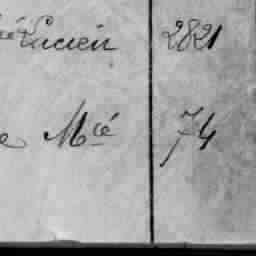 Lucien 2821
Mcé 74